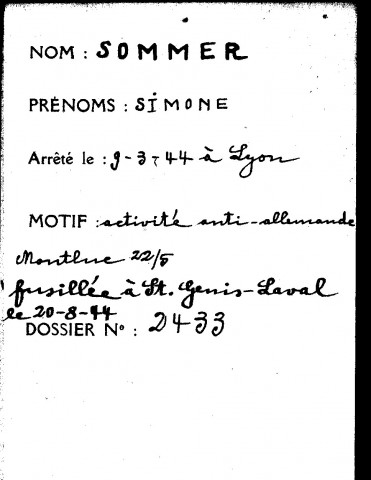 NOM : SOMMER
PRÉNOMS : SIMONE
Arrêté le : 9-3-44 à Lyon
MOTIF : activité anti-allemande
Montluc 22/5
fusillée à St. Genis-Laval
le 20-8-44
DOSSIER N° : 2433